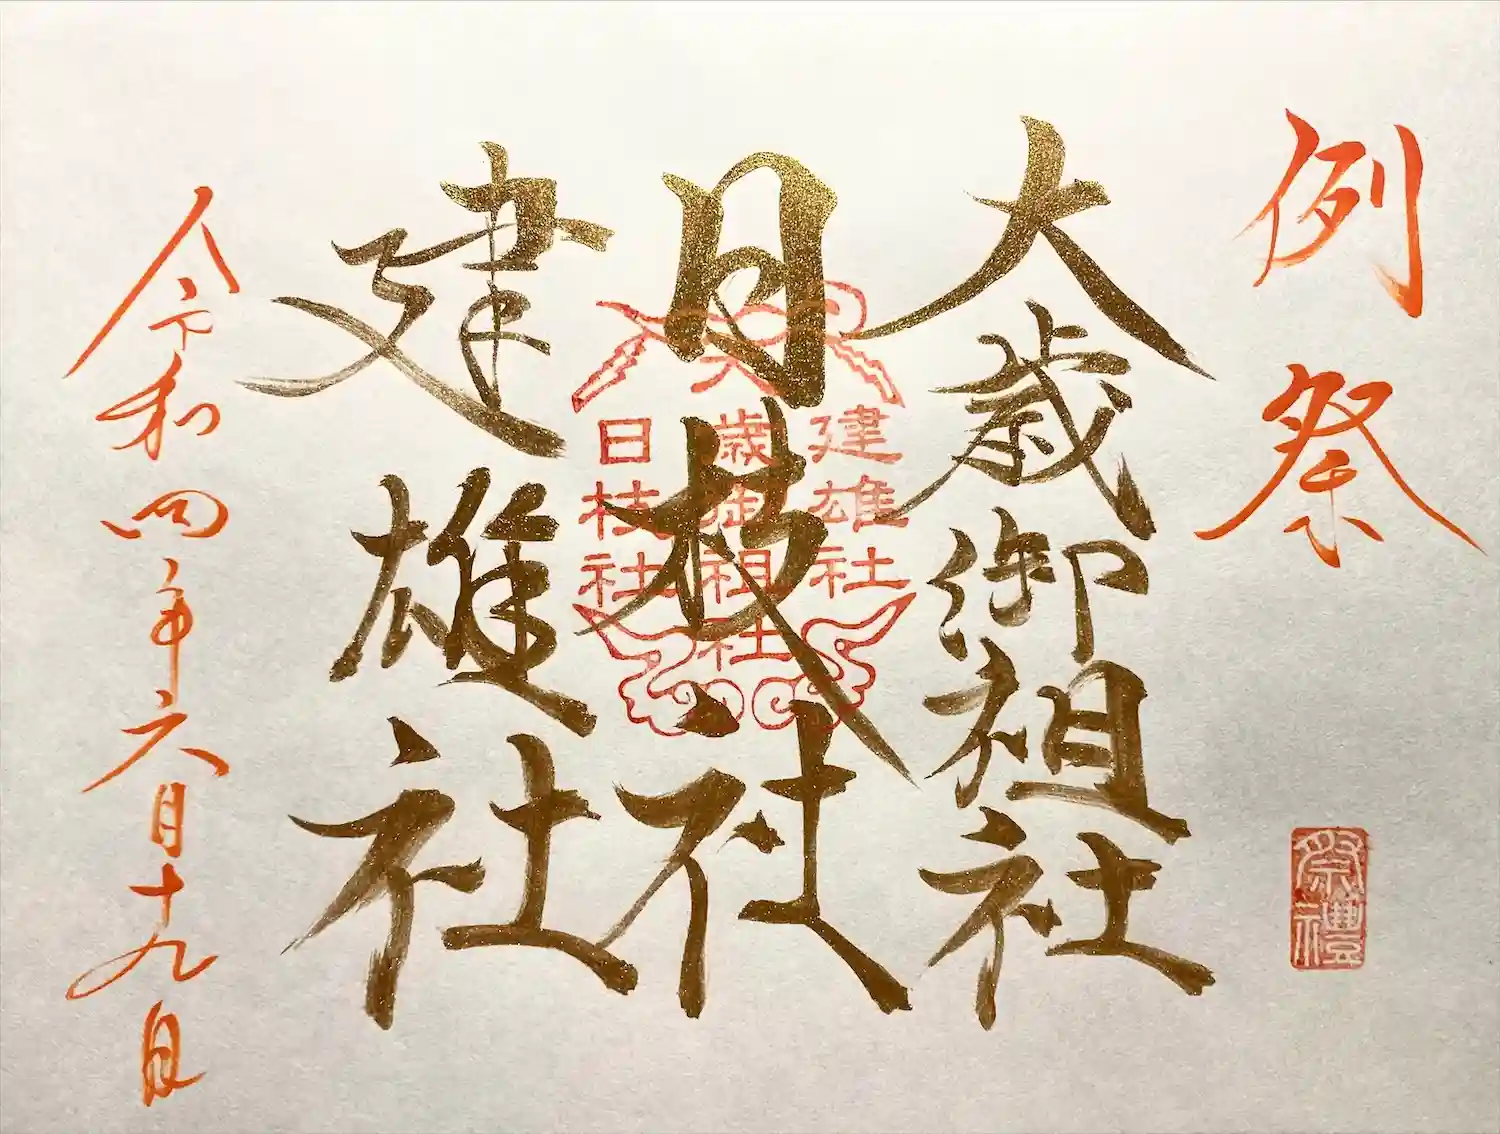 例祭
大歳御祖社
日枝社
建雄社
令和四年六月十九日
建雄社
大歳御祖社
日枝社
祭禮